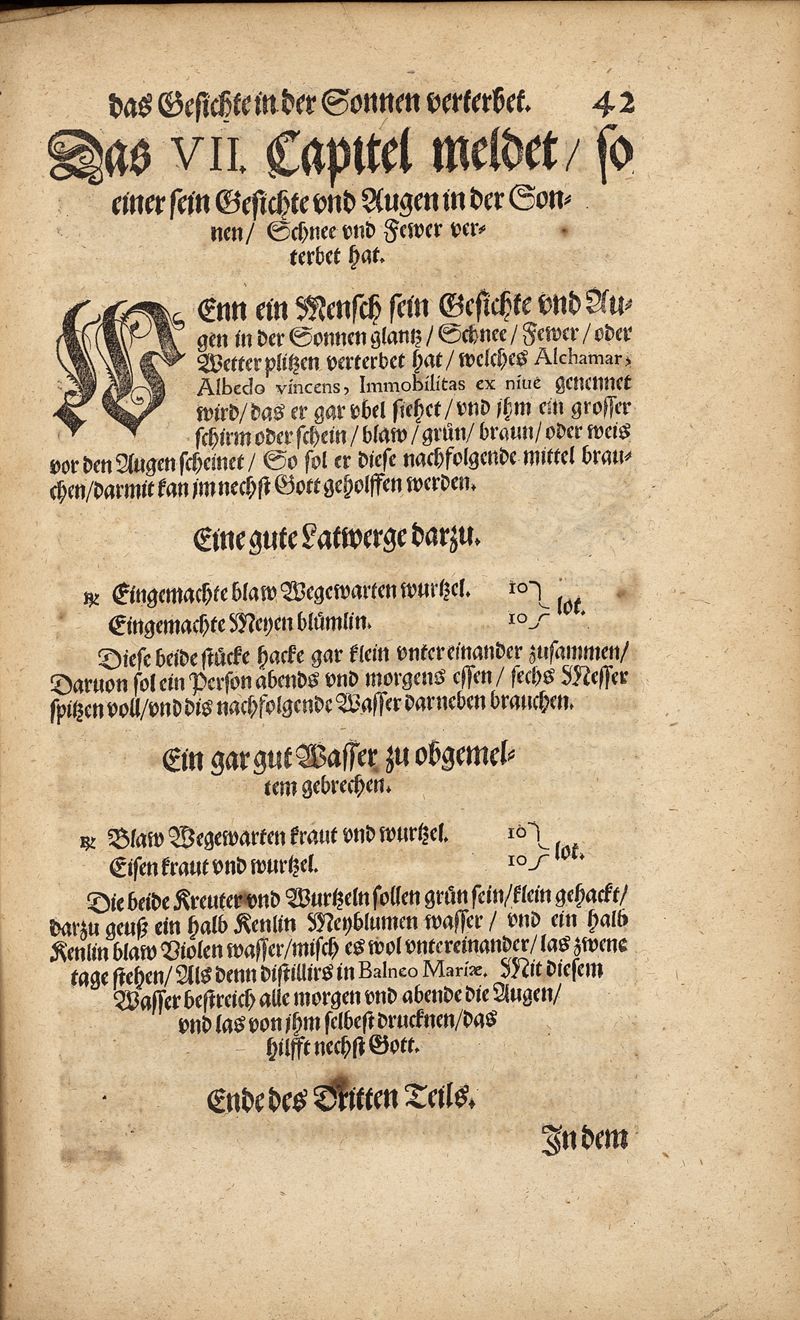 das Gesichte in der Sonnen verterbet. 42
Das VII. Capitel meldet / so
einer sein Gesichte vnd Augen in der Son⸗
nen / Schnee vnd Fewer ver⸗
terbet hat.
WEnn ein Mensch sein Gesichte vnd Au⸗
gen in der Sonnen glantz / Schnee / Fewer / oder
Wetter plitzen verterbet hat / welches Alchamar,
Albedo vincens, Immobilitas ex niue genennet
wird / das er gar vbel siehet / vnd jhm ein grosser
schirm oder schein / blaw / grün / braun / oder weis
vor den Augen scheinet / So sol er diese nachfolgende mittel brau⸗
chen / darmit kan jm nechst Gott geholffen werden.
Eine gute Latwerge darzu.
℞ Eingemachte blaw Wegewarten wurtzel. 10
Eingemachte Meyen blümlin. 10 lot.
Diese beide stücke hacke gar klein vnter einander zusammen /
Daruon sol ein Person abends vnd morgens essen / sechs Messer
spitzen voll / vnd dis nachfolgende Wasser darneben brauchen.
Ein gar gut Wasser zu obgemel⸗
tem gebrechen.
℞ Blaw Wegewarten kraut vnd wurtzel. 10
Eisen kraut vnd wurtzel. 10 lot.
Die beide Kreuter vnd Wurtzeln sollen grün sein / klein gehackt /
darzu geuß ein halb Kenlin Meyblumen wasser / vnd ein halb
Kenlin blaw Violen wasser / misch es wol vntereinander / las zwene
tage stehen / Als denn distillirs in Balneo Mariæ. Mit diesem
Wasser bestreich alle morgen vnd abende die Augen /
vnd las von jhm selbest drucknen / das
hilfft nechst Gott.
Ende des Dritten Teils.
In dem